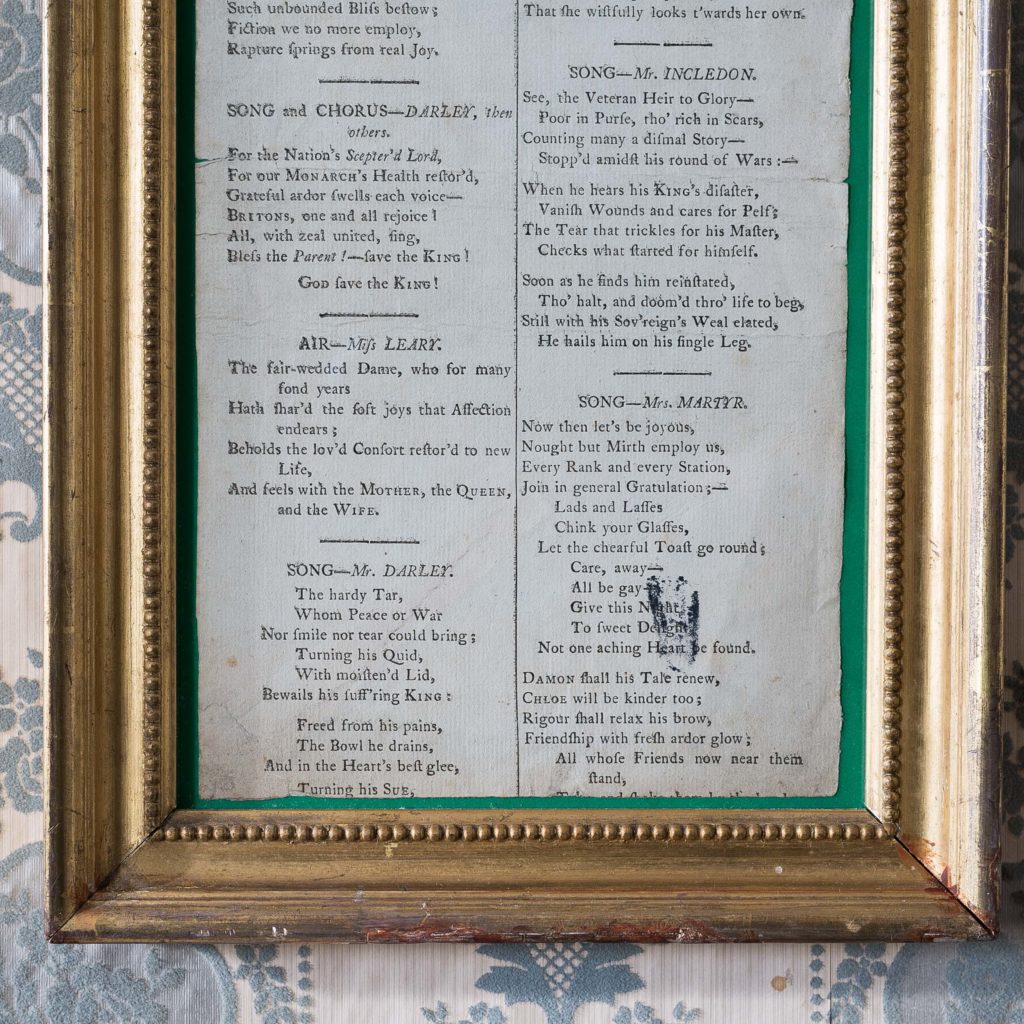 Such unbounded Bliſs beſtow;
Fiction we no more employ,
Rapture ſprings from real Joy.
SONG and CHORUS—DARLEY, then
others.
For the Nation's Scepter'd Lord,
For our MONARCH's Health reſtor'd,
Grateful ardor ſwells each voice—
BRITONS, one and all rejoice!
All, with zeal united, ſing,
Bleſs the Parent!—ſave the KING!
GOD ſave the KING!
AIR—Miſs LEARY.
The fair-wedded Dame, who for many
fond years
Hath ſhar'd the ſoft joys that Affection
endears;
Beholds the lov'd Conſort reſtor'd to new
Life,
And feels with the MOTHER, the QUEEN,
and the WIFE.
SONG—Mr. DARLEY.
The hardy Tar,
Whom Peace or War
Nor ſmile nor tear could bring;
Turning his Quid,
With moiſten'd Lid,
Bewails his ſuff'ring KING:
Freed from his pains,
The Bowl he drains,
And in the Heart's beſt glee,
Turning his SUE,
That ſhe wiſtfully looks t'wards her own.
SONG—Mr. INCLEDON.
See, the Veteran Heir to Glory—
Poor in Purſe, tho' rich in Scars,
Counting many a diſmal Story—
Stopp'd amidſt his round of Wars:—
When he hears his KING's diſaſter,
Vaniſh Wounds and cares for Pelf;
The Tear that trickles for his Maſter,
Checks what ſtarted for himſelf.
Soon as he finds him reinſtated,
Tho' halt, and doom'd thro' life to beg,
Still with his Sov'reign's Weal elated,
He hails him on his ſingle Leg.
SONG—Mrs. MARTYR.
Now then let's be joyous,
Nought but Mirth employ us,
Every Rank and every Station,
Join in general Gratulation;—
Lads and Laſſes
Chink your Glaſſes,
Let the chearful Toaſt go round;
Care, away—
All be gay—
Give this Night
To ſweet Delight
Not one aching Heart be found.
DAMON ſhall his Tale renew,
CHLOE will be kinder too;
Rigour ſhall relax his brow,
Friendſhip with freſh ardor glow;
All whoſe Friends now near them
ſtand,